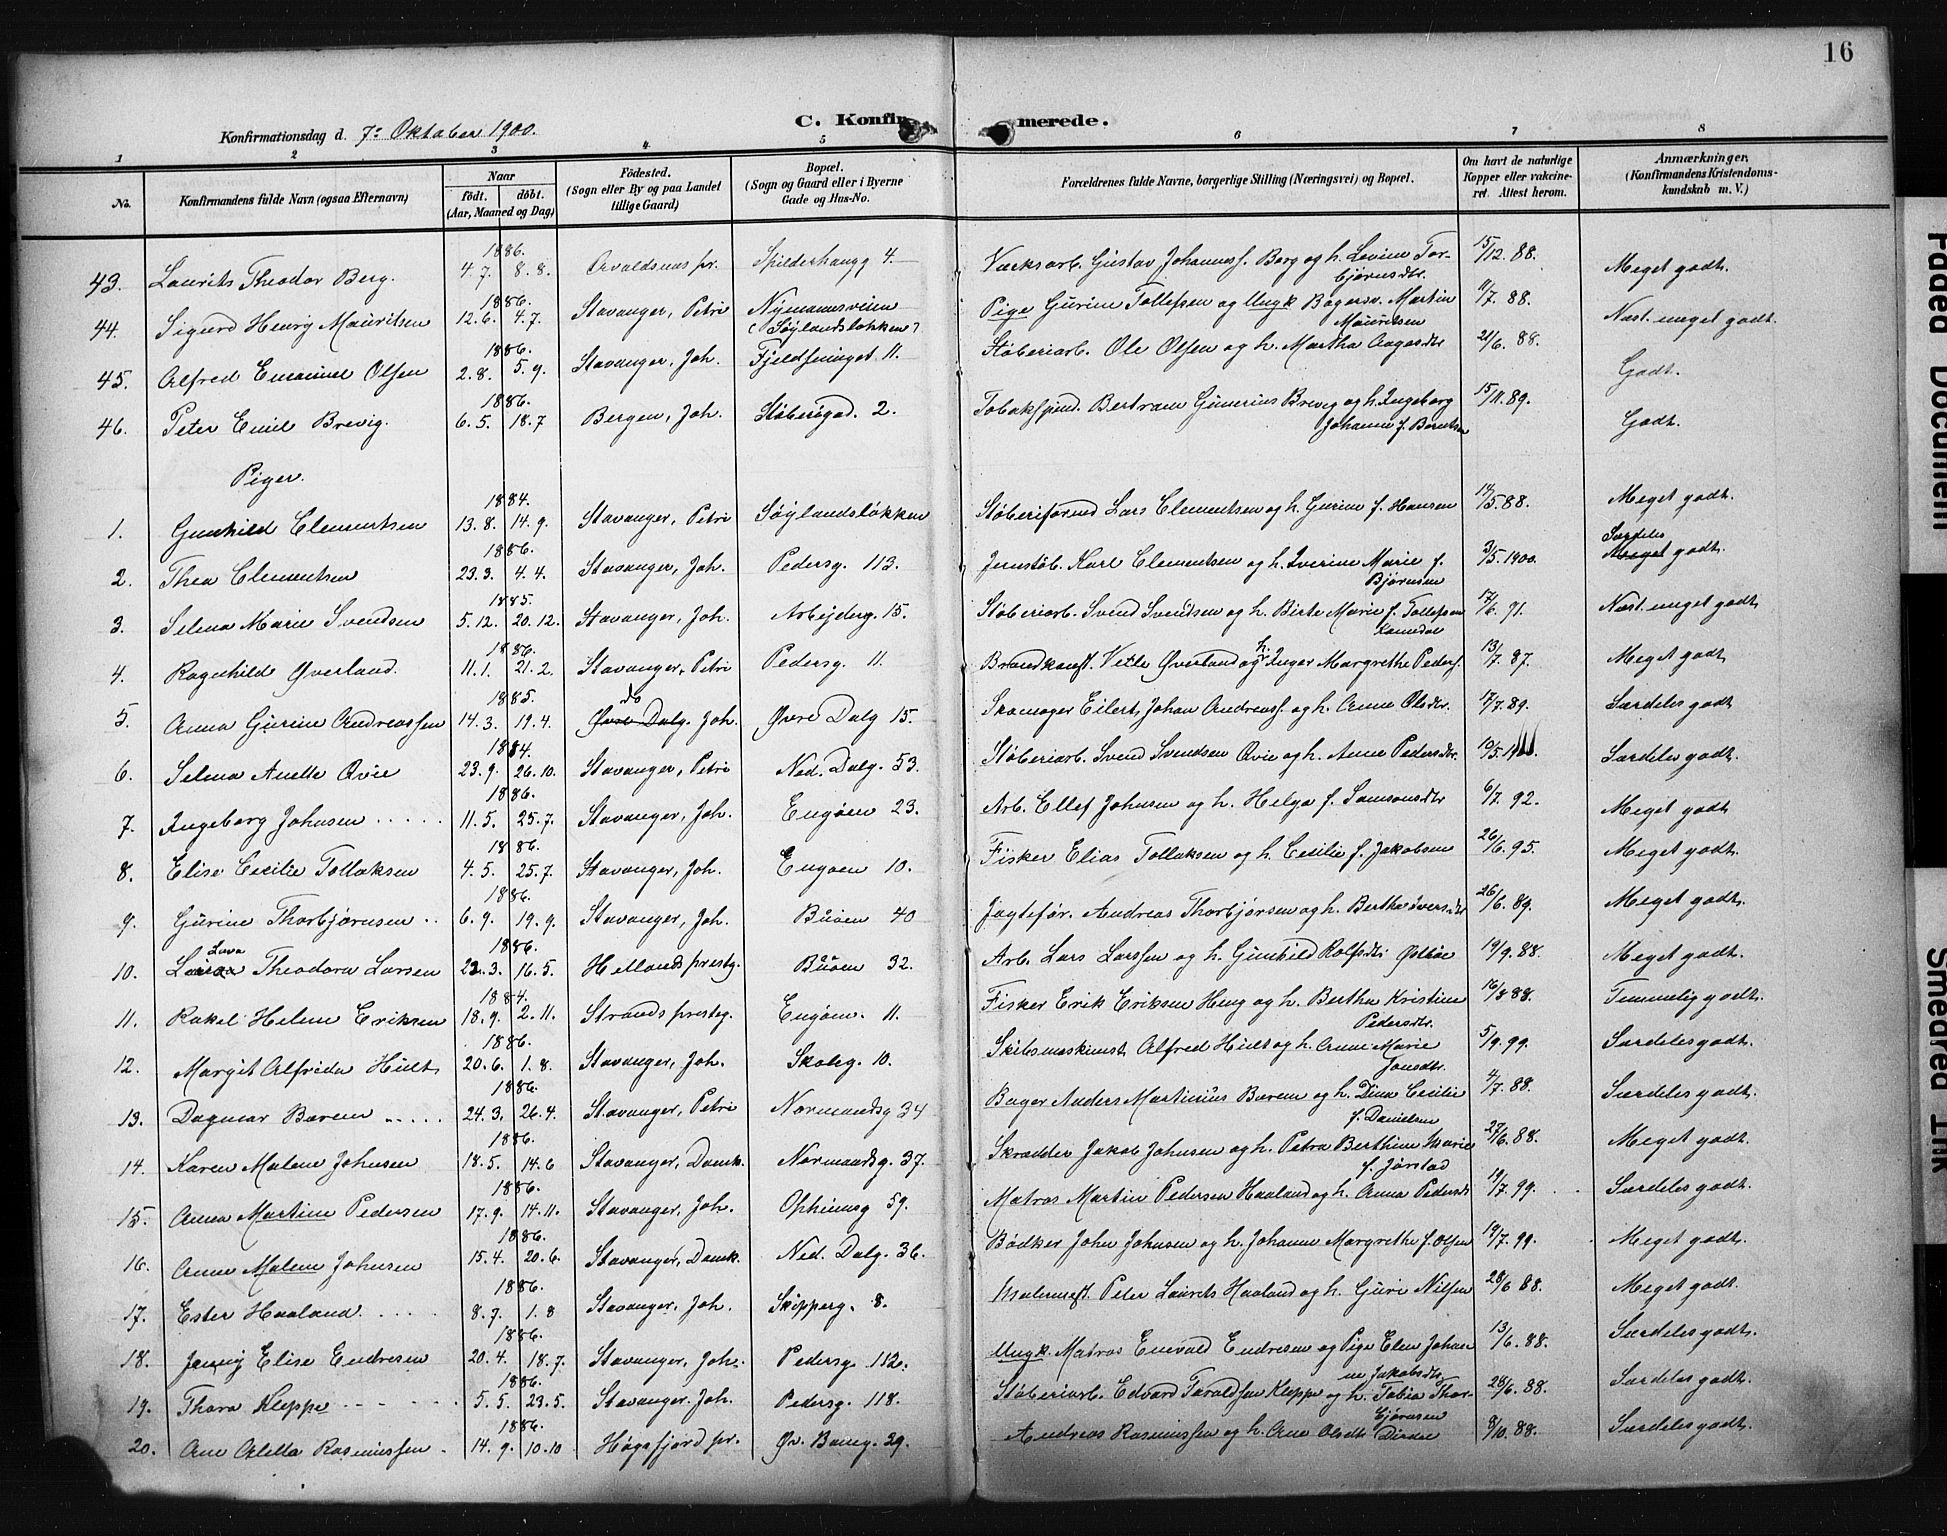 16
C. Konfirmerede.
Konfirmationsdag d. 7de Oktober 1900.
1 2 3 4 5 6 7 8
No.
Konfirmandens fulde Navn (ogsaa Efternavn)
Naar
født. døbt.
(Aar, Maaned og Dag)
Fødested.
(Sogn eller By og paa Landet
tillige Gaard)
Bopæl.
(Sogn og Gaard eller i Byerne
Gade og Hus-No.
Forældrenes fulde Navne, borgerlige Stilling (Næringsvei) og Bopæl.
Om havt de naturlige
Kopper eller vakcine-
ret. Attest herom.
Anmærkninger.
(Konfirmandens Kristendoms-
kundskab m. V.)
43. Laurits Theodor Berg. 1886. 4.7. 8.8. Avaldsnæs pr. Spilderhaugg 4. Værksarb. Gustav Johannesf. Berg og h. Levine Torbjørnsdtr. 15/12.88. Meget godt.
44. Sigurd Henrig Mauritsen 1886. 12.6. 4.7. Stavanger, Petri Nymannsveien (Søylandsløkken) Pige Gurine Tollefsen og Ungk. Bagersv. Martin Mauritsen 11/7.88. Næst. meget godt.
45. Alfred Emanuel Olsen 1886. 2.8. 5.9. Stavanger, Joh. 11. Støberiarb. Ole Olsen og h. Martha Aagesdtr 21/6.88. Godt.
46. Peter Emil Brevig. 1886. 6.5. 18.7 Bergen, Joh. Støberigad. 2. Tobakspind. Bertram Gunerius Brevig og h. Ingeborg Johanne f. Berntsen 15/11.89. Godt.
Piger.
1. Gunhild Clementsen 1884. 13.8. 14.9. Stavanger, Petri Søylandsløkken Støberiformd Lars Clementsen og h. Gurine f. Hansen 14/5.88. Meget godt.
2. Thea Clementsen 1886. 23.3. 4.4. Stavanger, Joh. Pedersg. 113. Jernstøb. Karl Clementsen og h. Iverine Marie f. Bjørnsen 3/5.1900. Særdeles Meget godt.
3. Selma Marie Svendsen 1885. 5.12. 20.12. Stavanger, Joh. Arbejderg. 15. Støberiarb. Svend Svendsen og h. Birte Marie f. Tollefsen 17/6.91. Næst. meget godt
4. Ragnhild Øverland. 1886. 11.1. 21.2. Stavanger, Petri Pedersg. 11. Brandkonst. Vetle Øverland og h. Inger Margrethe Pedersf. 13/7.87. Meget godt
5. Anna Gurine Andreassen 1885. 14.3. 19.4. do Øvre Dalg. Joh. Øvre Dalg 15. Skomager Eilert Johan Andreasf. og h. Anne Olsdtr. 17/7.89. Særdeles godt
6. Selma Anette Qvie 1884. 23.9. 26.10. Stavanger, Petri Ned. Dalg. 53. Støberiarb. Svend Svendsen Qvie og h. Anne Pedersdtr. 10/5.19 Særdeles godt.
7. Ingeborg Johnsen 1886. 11.5. 25.7. Stavanger, Joh. Engøen 23. Arb. Ellef Johnsen og h. Helga f. Samsonsdtr 6/7.92. Meget godt.
8. Elise Cecilie Tollaksen 1886. 4.5. 25.7. Stavanger, Joh. Engøen 10. Fisker Elias Tollaksen og h. Cecilie f. Jakobsen 26/6.95. Meget godt.
9. Gurine Thorbjørnsen 1886. 6.9. 19.9. Stavanger, Joh. Buøen 40 Jagtefør. Andreas Thorbjørsen og h. Bertha Iversdtr 26/6.89. Meget godt.
10. Lava Theodora Larsen 1886. 22.3. 16.5. Hetlands prestg. Buøen 32. Arb. Lars Larssen og h. Gunhild Rolfsdtr. Østbøe 19/9.88. Meget godt.
11. Rakel Helene Eriksen 1884. 18.9. 2.11. Strands prestg. Engøen. 11. Fisker Erik Eriksen Heng og h. Bertha Kristine Pedersdtr. 16/8.88. Temmelig godt.
12. Margit Alfrida Hult 1886. 20.6. 1.8. Stavanger, Joh. Skoleg. 10. Skibsmaskinist Alfred Hult og h. Anne Marie Jonsdtr. 5/9.99. Særdeles godt.
13. Dagmar Barem 1886. 24.3. 26.4. Stavanger, Petri Normandsg 34 Bager Anders Martinius Barem og h. Dina Cecilie f. Danielsen 4/7.88. Særdeles godt.
14. Karen Malene Johnsen 1886. 18.5. 14.6 Stavanger, Domk. Normandsg. 37. Skrædder Jakob Johnsen og h. Petra Berthine Marie f. Jørstad 27/6.88. Meget godt.
15. Anna Martine Pedersen 1886. 17.9. 14.11. Stavanger, Joh. Opheimsg 59. Matros Martin Pedersen Haaland og h. Anna Pedersdtr 19/7.99. Særdeles godt.
16. Anne Malene Johnsen 1886. 15.4. 20.6. Stavanger, Domk. Ned. Dalg. 36. Bødker John Johnsen og h. Johanne Margrethe f. Olsen 19/7.99. Meget godt.
17. Ester Haaland. 1886. 8.7. 1.8 Stavanger, Joh. Skipperg. 8. Malermest. Peter Laurits Haaland og h. Guri Nilsen 28/6 88. Meget godt.
18. Jenny Elise Endresen 1886. 20.4. 18.7. Stavanger, Joh. Pedersg. 112. Ungk. Matros Enevald Endresen og Pige Elen Johanne Jakobsdtr 13/6.88. Særdeles godt.
19. Thora Kleppe 1886. 5.5. 23.5. Stavanger, Joh. Pedersg. 118. Støberiarb. Edvard Taraldsen Kleppe og h. Tobia Thorbjørnsen 28/6.88. Særdeles godt.
20. Ane Aletta Rasmussen 1886. 14.9. 10.10. Høgsfjord pr. Øv. Baneg. 29. Andreas Rasmussen og h. Ane Olsdtr Dirdal 8/10.88. Særdeles godt.
Faded Document
Smeared Ink